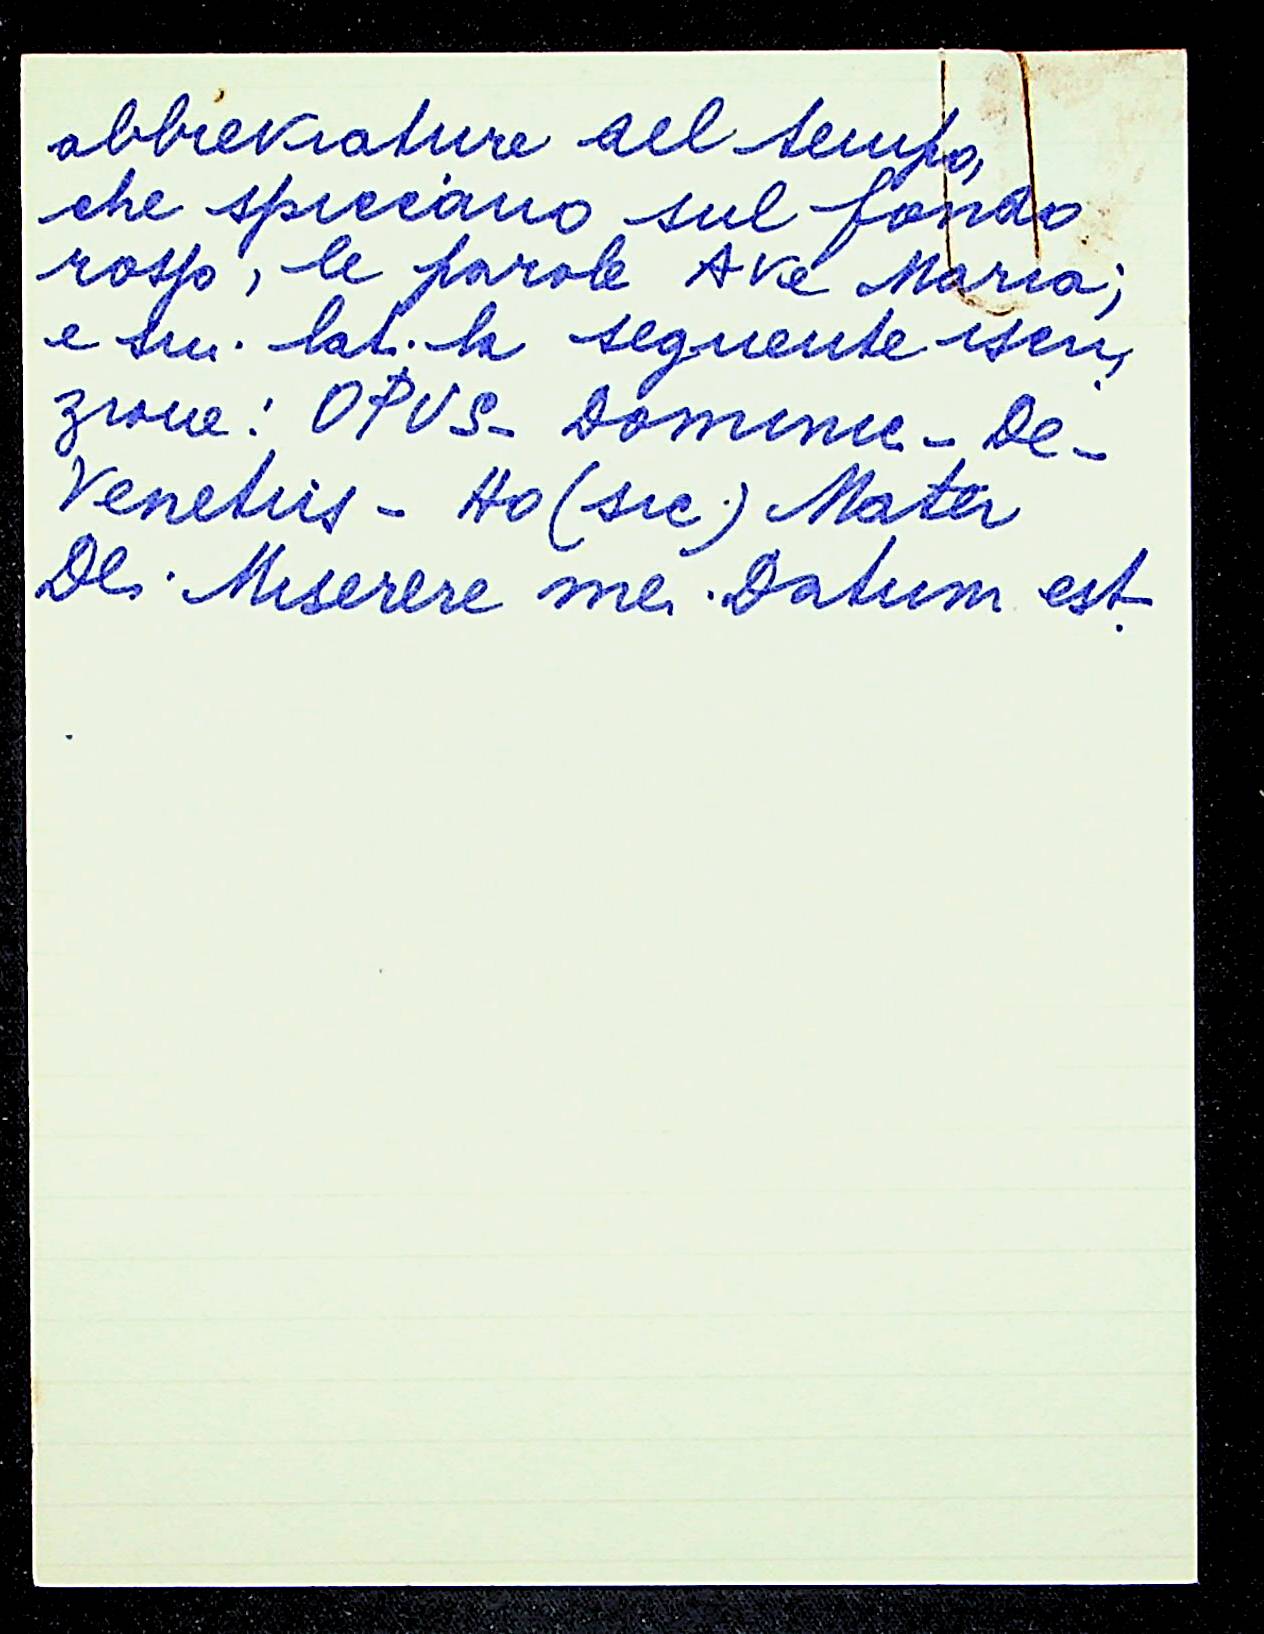 abbreviature del tempo,
che spiccano sul fondo
rosso, le parole Ave Maria;
e sui lati la seguente iscri,
zione: OPVS - Dominic - De -
Venetiis - Ho (sic) Mater
Dei Miserere mei. Datum est.